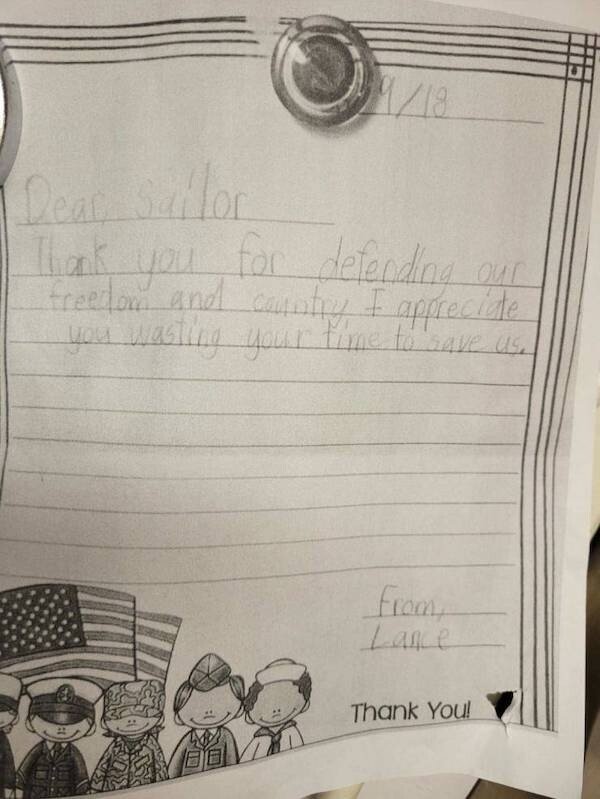 9/18
Dear, Sailor
Thank you for defending our
freedom and country I appreciate
you wasting your time to save us.
From,
Lance
Thank You!